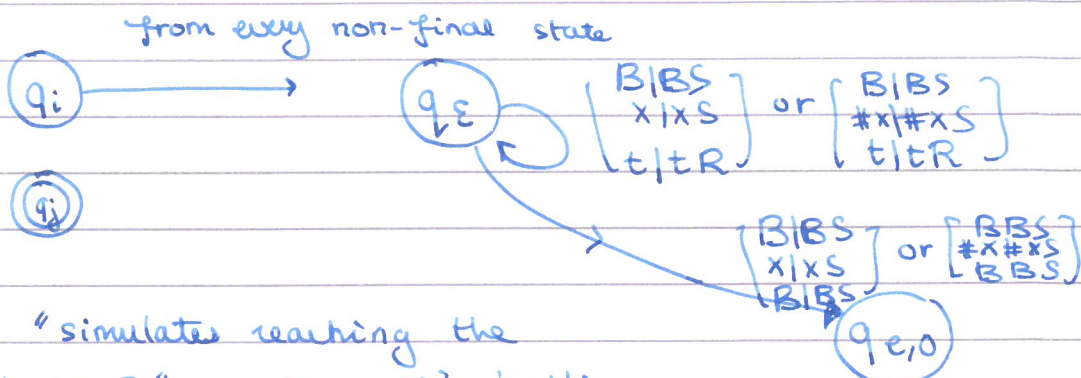 from every non-final state
qi
qε
B|BS
x|xS
t|tR
or
B|BS
#x|#xS
t|tR
qj
B|BS
x|xS
B|BS
or
BBS
#x#xS
BBS
"simulates reaching the
qe,0